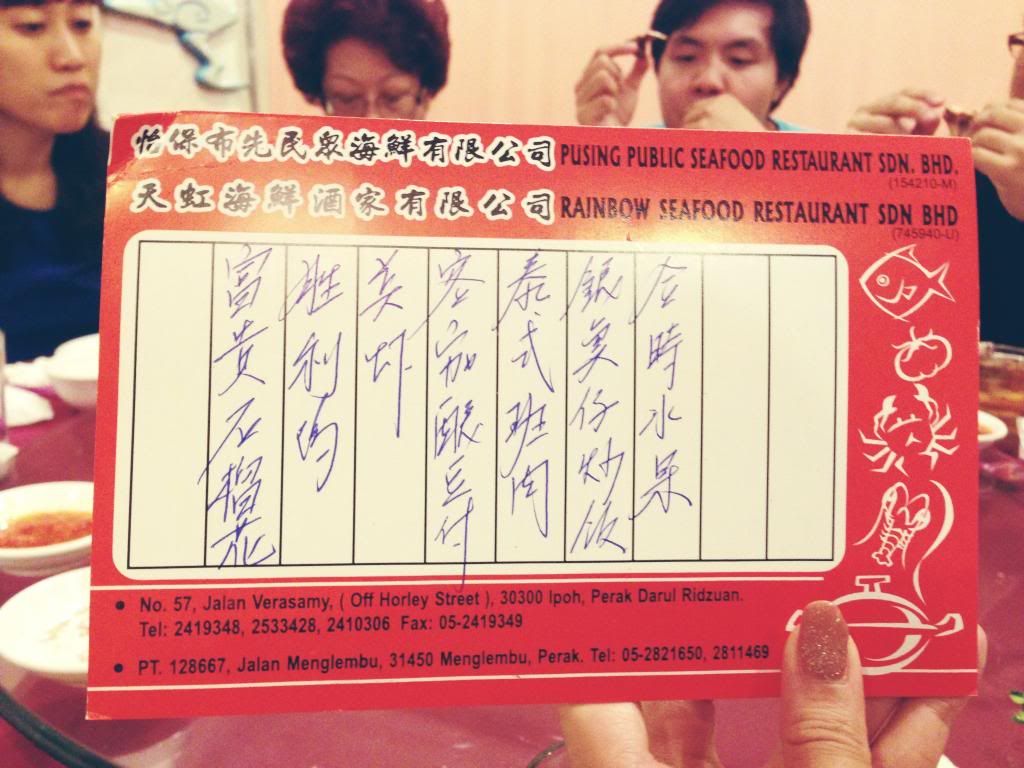 怡保布先民眾海鮮有限公司 PUSING PUBLIC SEAFOOD RESTAURANT SDN. BHD.
(154210-M)
天虹海鮮酒家有限公司 RAINBOW SEAFOOD RESTAURANT SDN BHD
(745940-U)
富贵石榴花
胜利鸡
美炸
客家酿豆付
泰式班肉
銀魚仔炒饭
合時水果
• No. 57, Jalan Verasamy, ( Off Horley Street ), 30300 Ipoh, Perak Darul Ridzuan.
Tel: 2419348, 2533428, 2410306 Fax: 05-2419349
• PT. 128667, Jalan Menglembu, 31450 Menglembu, Perak. Tel: 05-2821650, 2811469